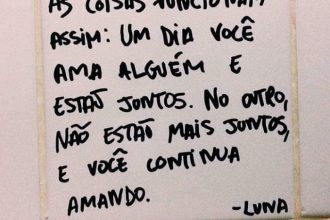 AS COISAS FUNCIONAM
ASSIM: UM DIA VOCÊ
AMA ALGUÉM E
ESTÃO JUNTOS. NO OUTRO,
NÃO ESTÃO MAIS JUNTOS,
E VOCÊ CONTINUA
AMANDO.
-LUNA